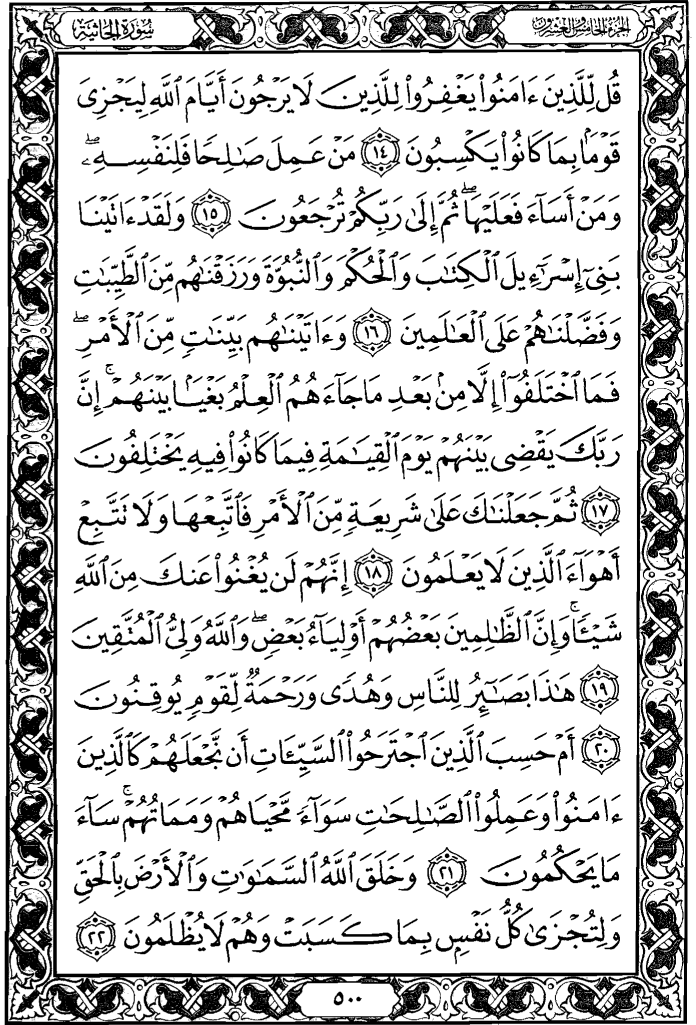 سُورَةُ الجَاثِيَةِ
الجُزءُ الخَامِسُ وَالعِشرُونَ
قُل لِّلَّذِينَ ءَامَنُوا۟ يَغْفِرُوا۟ لِلَّذِينَ لَا يَرْجُونَ أَيَّامَ ٱللَّهِ لِيَجْزِىَ
قَوْمًۢا بِمَا كَانُوا۟ يَكْسِبُونَ ١٤ مَنْ عَمِلَ صَـٰلِحًا فَلِنَفْسِهِۦ ۖ
وَمَنْ أَسَآءَ فَعَلَيْهَا ۖ ثُمَّ إِلَىٰ رَبِّكُمْ تُرْجَعُونَ ١٥ وَلَقَدْ ءَاتَيْنَا
بَنِىٓ إِسْرَٰٓءِيلَ ٱلْكِتَـٰبَ وَٱلْحُكْمَ وَٱلنُّبُوَّةَ وَرَزَقْنَـٰهُم مِّنَ ٱلطَّيِّبَـٰتِ
وَفَضَّلْنَـٰهُمْ عَلَى ٱلْعَـٰلَمِينَ ١٦ وَءَاتَيْنَـٰهُم بَيِّنَـٰتٍ مِّنَ ٱلْأَمْرِ ۖ
فَمَا ٱخْتَلَفُوٓا۟ إِلَّا مِنۢ بَعْدِ مَا جَآءَهُمُ ٱلْعِلْمُ بَغْيًۢا بَيْنَهُمْ ۚ إِنَّ
رَبَّكَ يَقْضِى بَيْنَهُمْ يَوْمَ ٱلْقِيَـٰمَةِ فِيمَا كَانُوا۟ فِيهِ يَخْتَلِفُونَ
١٧ ثُمَّ جَعَلْنَـٰكَ عَلَىٰ شَرِيعَةٍ مِّنَ ٱلْأَمْرِ فَٱتَّبِعْهَا وَلَا تَتَّبِعْ
أَهْوَآءَ ٱلَّذِينَ لَا يَعْلَمُونَ ١٨ إِنَّهُمْ لَن يُغْنُوا۟ عَنكَ مِنَ ٱللَّهِ
شَيْـًٔا ۚ وَإِنَّ ٱلظَّـٰلِمِينَ بَعْضُهُمْ أَوْلِيَآءُ بَعْضٍ ۖ وَٱللَّهُ وَلِىُّ ٱلْمُتَّقِينَ
١٩ هَـٰذَا بَصَـٰٓئِرُ لِلنَّاسِ وَهُدًى وَرَحْمَةٌ لِّقَوْمٍ يُوقِنُونَ
٢٠ أَمْ حَسِبَ ٱلَّذِينَ ٱجْتَرَحُوا۟ ٱلسَّيِّـَٔاتِ أَن نَّجْعَلَهُمْ كَٱلَّذِينَ
ءَامَنُوا۟ وَعَمِلُوا۟ ٱلصَّـٰلِحَـٰتِ سَوَآءً مَّحْيَاهُمْ وَمَمَاتُهُمْ ۚ سَآءَ
مَا يَحْكُمُونَ ٢١ وَخَلَقَ ٱللَّهُ ٱلسَّمَـٰوَٰتِ وَٱلْأَرْضَ بِٱلْحَقِّ
وَلِتُجْزَىٰ كُلُّ نَفْسٍۭ بِمَا كَسَبَتْ وَهُمْ لَا يُظْلَمُونَ ٢٢
٥٠٠